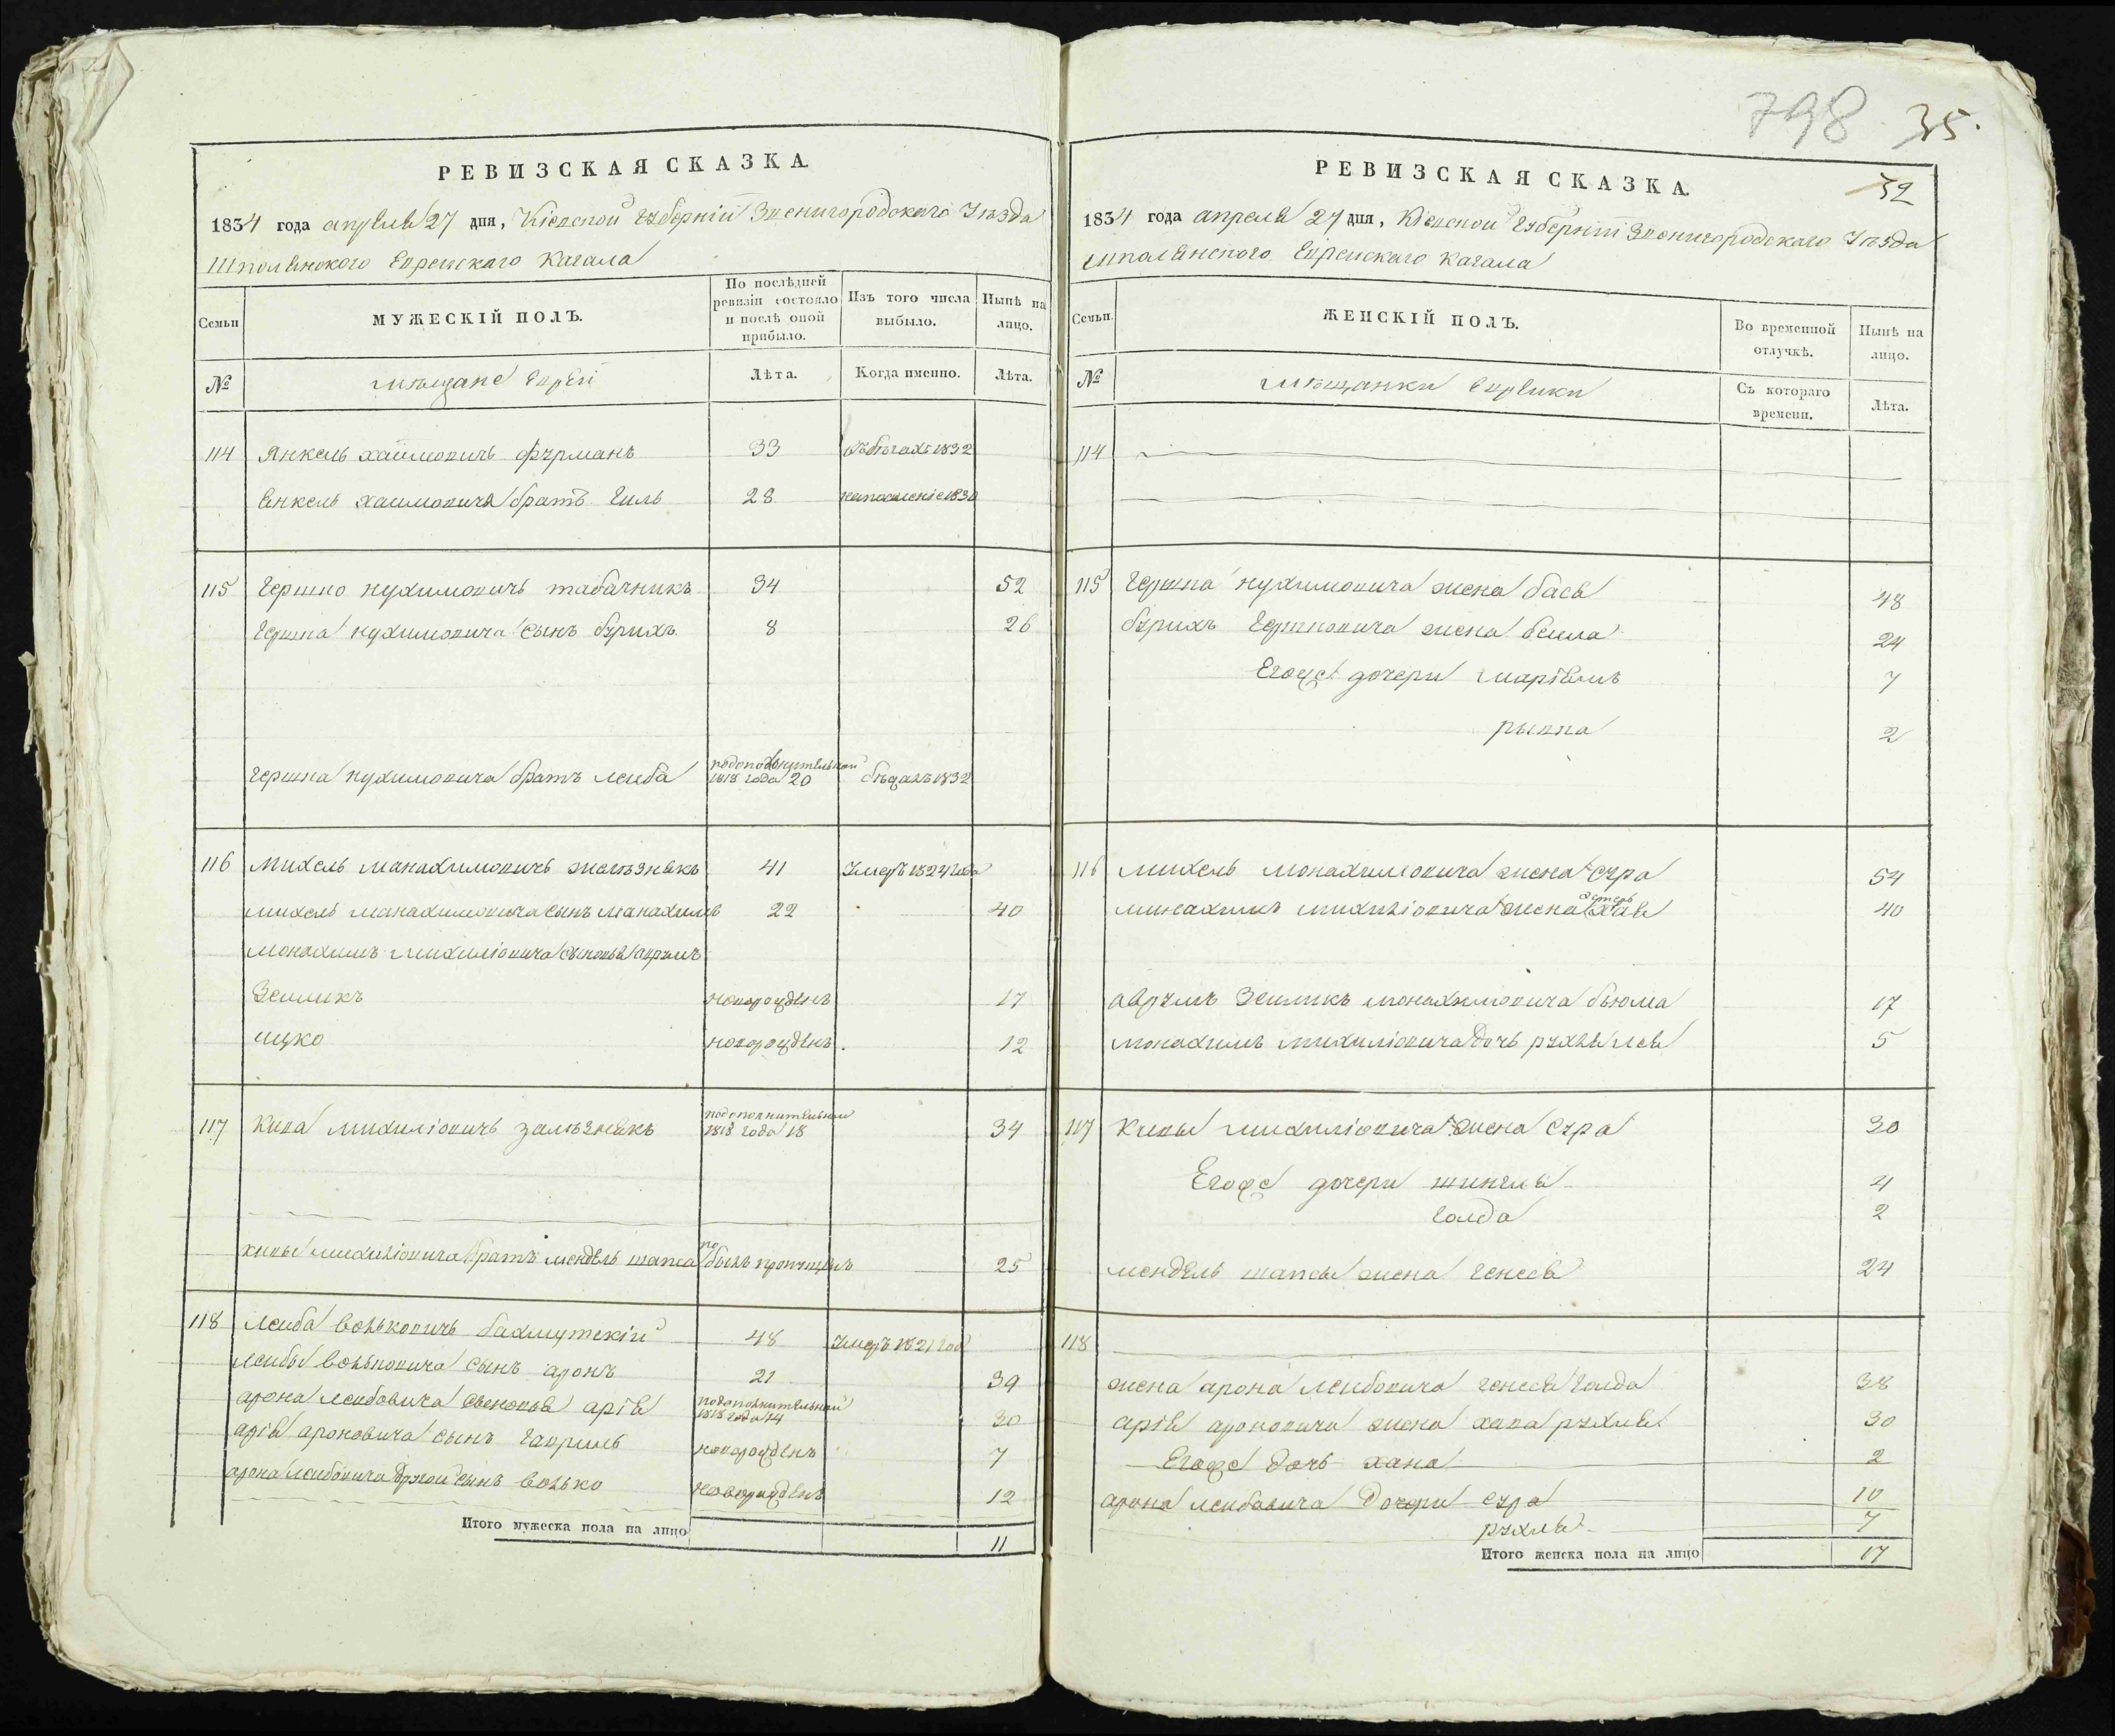 798 35.
РЕВИЗСКАЯ СКАЗКА
1834 года апреля 27 дня, Кіевской Губерніи Звенигородскаго Уѣзда
Шполянского Еврейскаго Кагала
Семьи МУЖЕСКІЙ ПОЛЪ. По послѣдней ревизіи состояло и послѣ оной прибыло. Изъ того числа выбыло. Нынѣ на лицо.
№ мѣщане Евреи Лѣта. Когда именно. Лѣта.
114 Янкель хаимовичъ фурманъ 33 въ бѣгахъ 1832
Янкель хаимовича братъ Гиль 28 на поселеніе 1830
115 Гершко нухимовичъ табачникъ 34 52
Гершка нухимовича сынъ бурихъ 8 26
Гершка нухимовича братъ лейба 1818 года 20 1832
116 Михель манахимовичъ желѣзнякъ 41 Умеръ 1824 года
михель манахимовича сынъ манахимъ 22 40
монахимъ михиліовича сыновья аврумъ
Зейликъ новорожденъ 17
ицко новорожденъ. 12
117 Кива михиліовичъ залѣзнякъ подополнительной 1818 года 18 34
кивы михиліовича братъ мендель шапса былъ пропущенъ 25
118 Лейба вольковичъ бахмутскій 48 Умеръ 1821 год
лейбы вольковича сынъ аронъ 21 39
арона лейбовича сыновья арія подополнительной 1818 года 14 30
арія ароновича сынъ гавриль новорожденъ 7
арона лейбовича другой сынъ волько новорожденъ 12
Итого мужеска пола на лицо 11
РЕВИЗСКАЯ СКАЗКА. 32
1834 года апреля 27 дня, Кіевской Губерніи Звенигородскаго Уѣзда
Шполянского Еврейскаго Кагала
Семьи. ЖЕНСКІЙ ПОЛЪ. Во временной отлучкѣ. Нынѣ на лицо.
№ мѣщанки Еврейки Съ котораго времени. Лѣта.
114
115 Гершка нухимовича жена бася 48
бурихъ Гершковича жена бейла 24
Егожъ дочери маріямъ 7
рывка 2
116 михель монахимовича жена сура 54
минахимъ михиліовича жена хая 40
аврумъ Зейликъ монахимовича бьюма 17
монахимъ михиліовича дочь рухля лея 5
117 Кивы михиліовича жена сура 30
Егоже дочери шингля 4
голда 2
мендель шапсы жена генеся 24
118
жена арона лейбовича генеся голда 38
арія ароновича жена хава рухля 30
Егоже дочь хана 2
арона лейбовича дочери сура 10
рухля 7
Итого женска пола на лицо 17